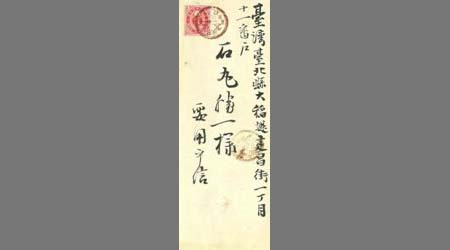 臺灣臺北縣大稲埕建昌街一丁目
十一番戸
石丸勝一様
要用平信